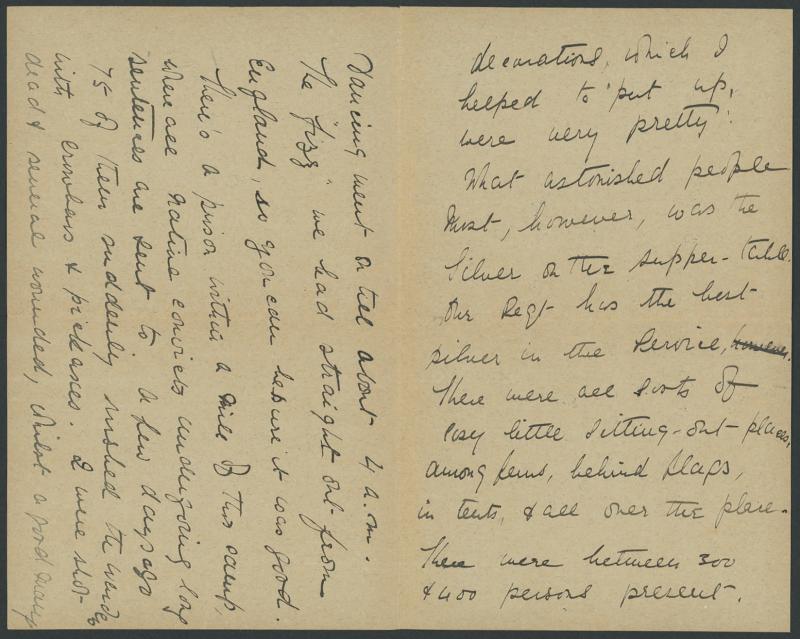 decorations, which I
helped to put up,
were very pretty.
What astonished people
Most, however, was the
Silver on the supper-table.
Our Regt has the best
silver in the Service, however.
There were all sorts of
cosy little sitting-out-places,
among ferns, behind flags,
in tents, & all over the place.
There were between 300
& 400 persons present.
Dancing went on till about 4 a.m.
The "fizz" we had straight out from
England, so you can be sure it was good.
There's a prison within a mile of this camp,
where all native convicts undergoing long
sentences are sent to. A few days ago
75 of them suddenly rushed the warders
with crowbars & pickaxes. 2 were shot
dead & several wounded, whilst a good many